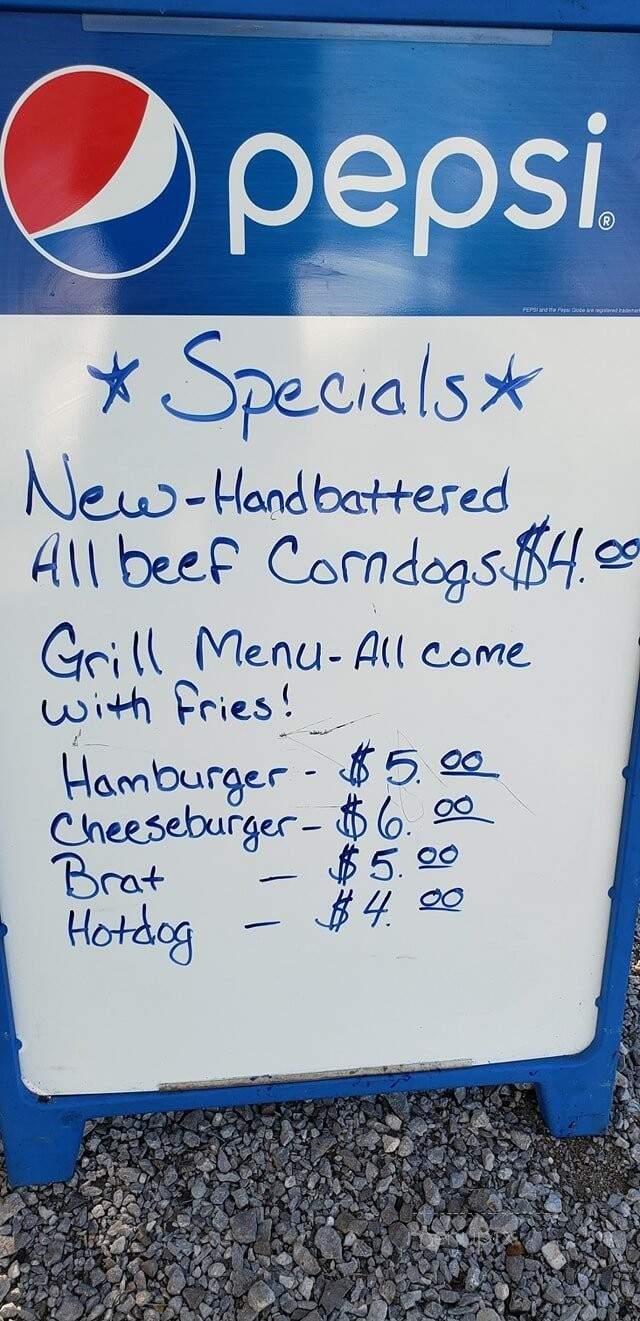 pepsi®
PEPSI and the Pepsi Globe are registered trademar
* Specials *
New-Handbattered
All beef Corndogs $4.00
Grill Menu-All come
with fries!
Hamburger - $5.00
Cheeseburger - $6.00
Brat - $5.00
Hotdog - $4.00